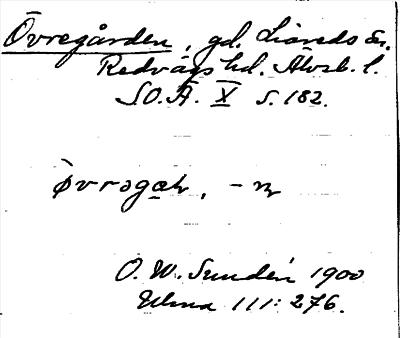 Övregården, gd. Liareds sn.
Redvägs hd. Älvsb. l.
SO.Ä. X s. 182.
O. W. Sundén 1900
Ulma 111: 276.